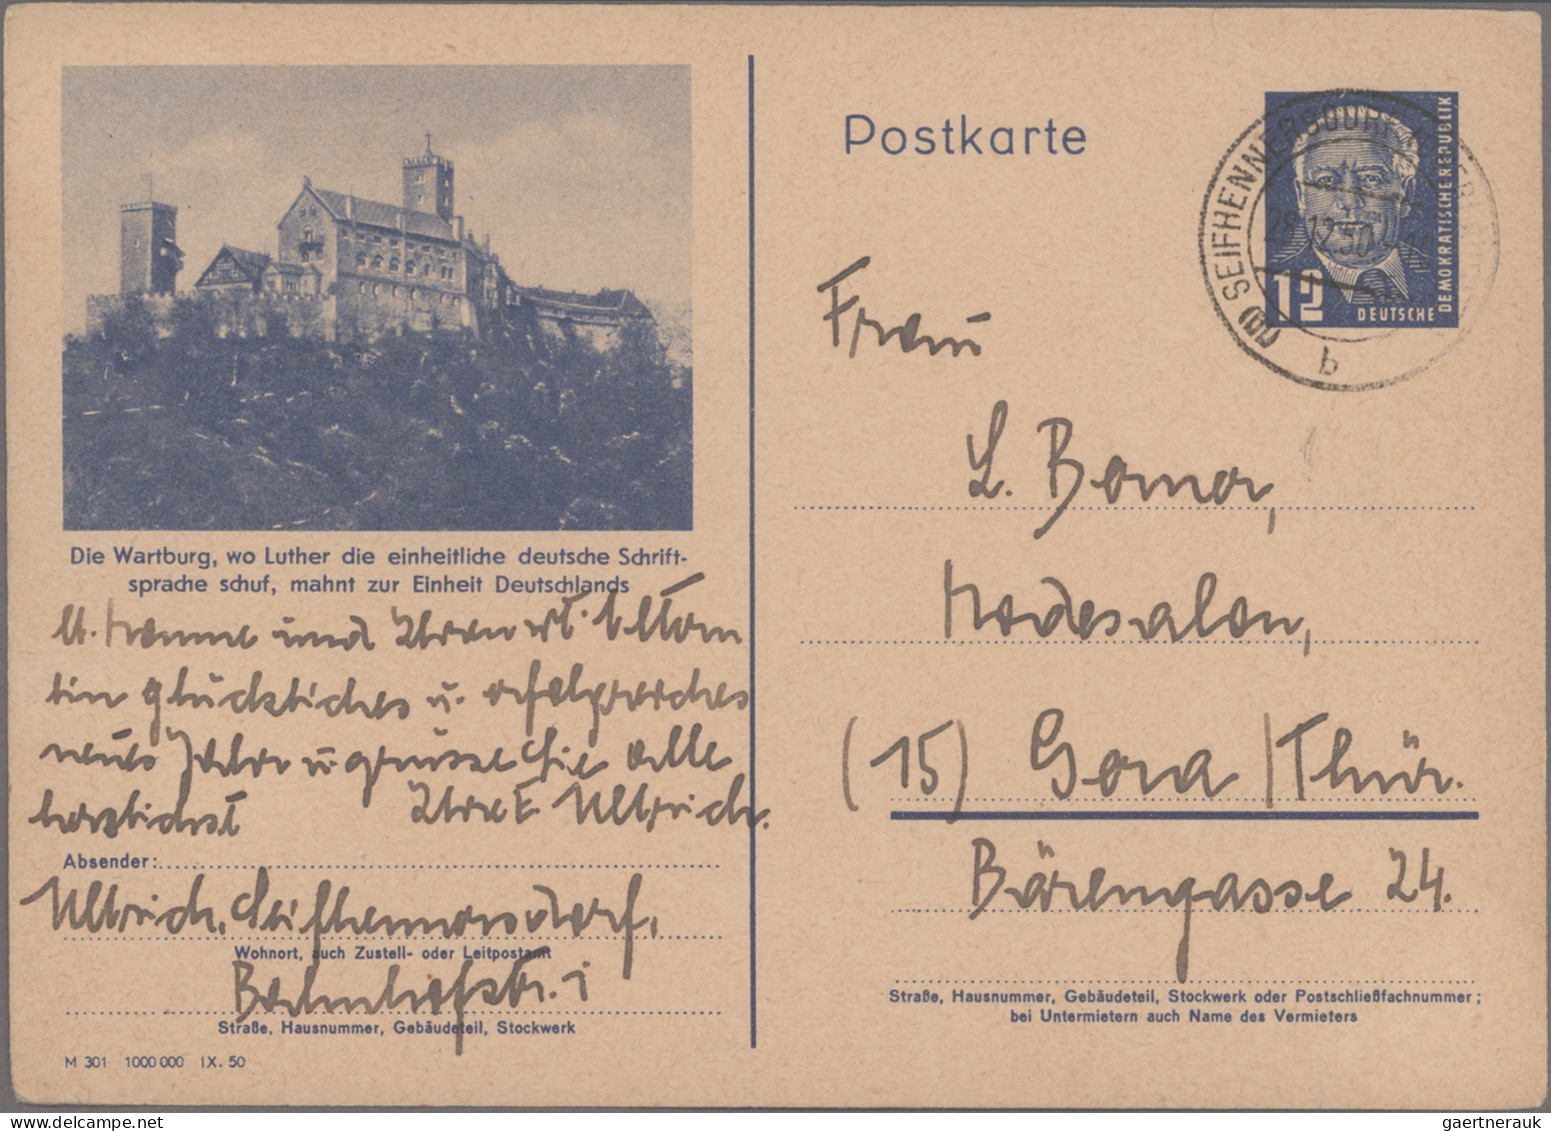 Die Wartburg, wo Luther die einheitliche deutsche Schrift-
sprache schuf, mahnt zur Einheit Deutschlands
und Ihren
ein glückliches u. erfolgreiches
neues Jahr u grüsse Sie alle
herzlichst Ihre E. Ullrich.
Absender:
Ullrich, Seifhennersdorf,
Wohnort, auch Zustell- oder Leitpostamt
Bahnhofstr. 1
Straße, Hausnummer, Gebäudeteil, Stockwerk
M 301 1000 000 IX. 50
Postkarte
12
DEUTSCHE
DEMOKRATISCHE REPUBLIK
SEIFHENNERSDORF
28.12.50
b
Frau
L.
Modesalon,
(15) Gera / Thür.
Bärengasse 24.
Straße, Hausnummer, Gebäudeteil, Stockwerk oder Postschließfachnummer;
bei Untermietern auch Name des Vermieters
gaertnerauk